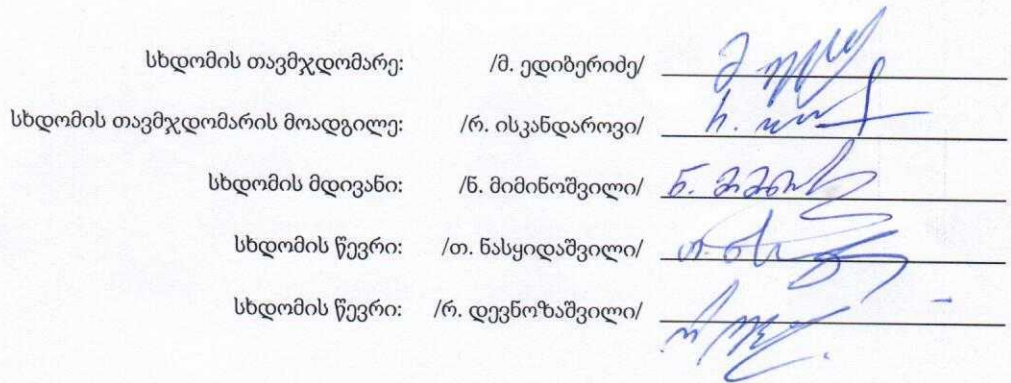 სხდომის თავმჯდომარე: /მ. ედიბერიძე/
სხდომის თავმჯდომარის მოადგილე: /რ. ისკანდაროვი/
სხდომის მდივანი: /ნ. მიმინოშვილი/
სხდომის წევრი: /თ. ნასყიდაშვილი/
სხდომის წევრი: /რ. დევნოზაშვილი/